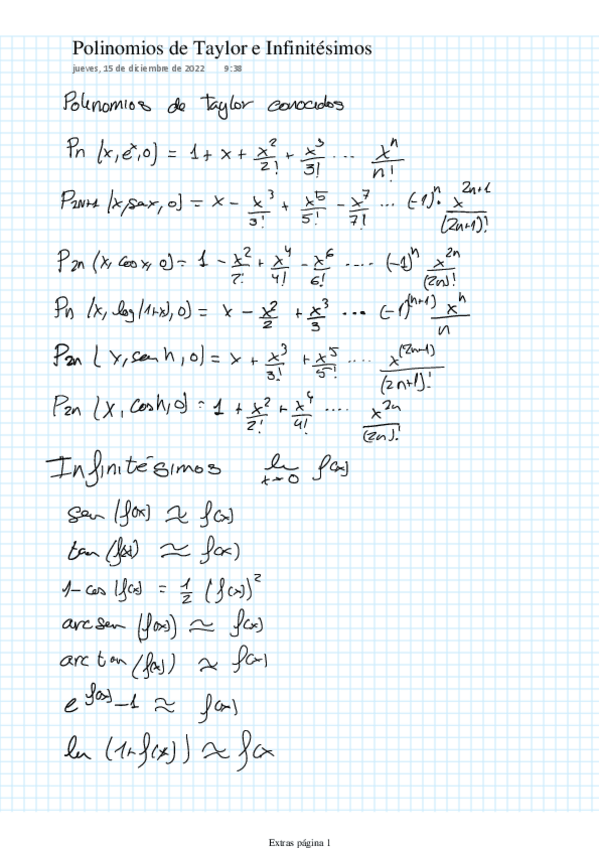 Polinomios de Taylor e Infinitésimos
jueves, 15 de diciembre de 2022 9:38
Polinomios de taylor conocidos
Pn (x, e^x, 0) = 1 + x + x^2/2! + x^3/3! ... x^n/n!
P2n+1 (x, senx, 0) = x - x^3/3! + x^5/5! - x^7/7! ... (-1)^n · x^(2n+1)/(2n+1)!
P2n (x, cosx, 0) = 1 - x^2/2! + x^4/4! - x^6/6! .... (-1)^n x^(2n)/(2n)!
Pn (x, log(1+x), 0) = x - x^2/2 + x^3/3 ... (-1)^(n+1) x^n/n
P2n (x, senh, 0) = x + x^3/3! + x^5/5! .... x^(2n+1)/(2n+1)!
P2n (x, cosh, 0) = 1 + x^2/2! + x^4/4! .... x^(2n)/(2n)!
Infinitésimos lim x→0 f(x)
sen (f(x)) ≈ f(x)
tan (f(x)) ≈ f(x)
1-cos (f(x)) = 1/2 (f(x))^2
arcsen (f(x)) ≈ f(x)
arctan (f(x)) ≈ f(x)
e^f(x) - 1 ≈ f(x)
ln (1+f(x)) ≈ f(x
Extras página 1